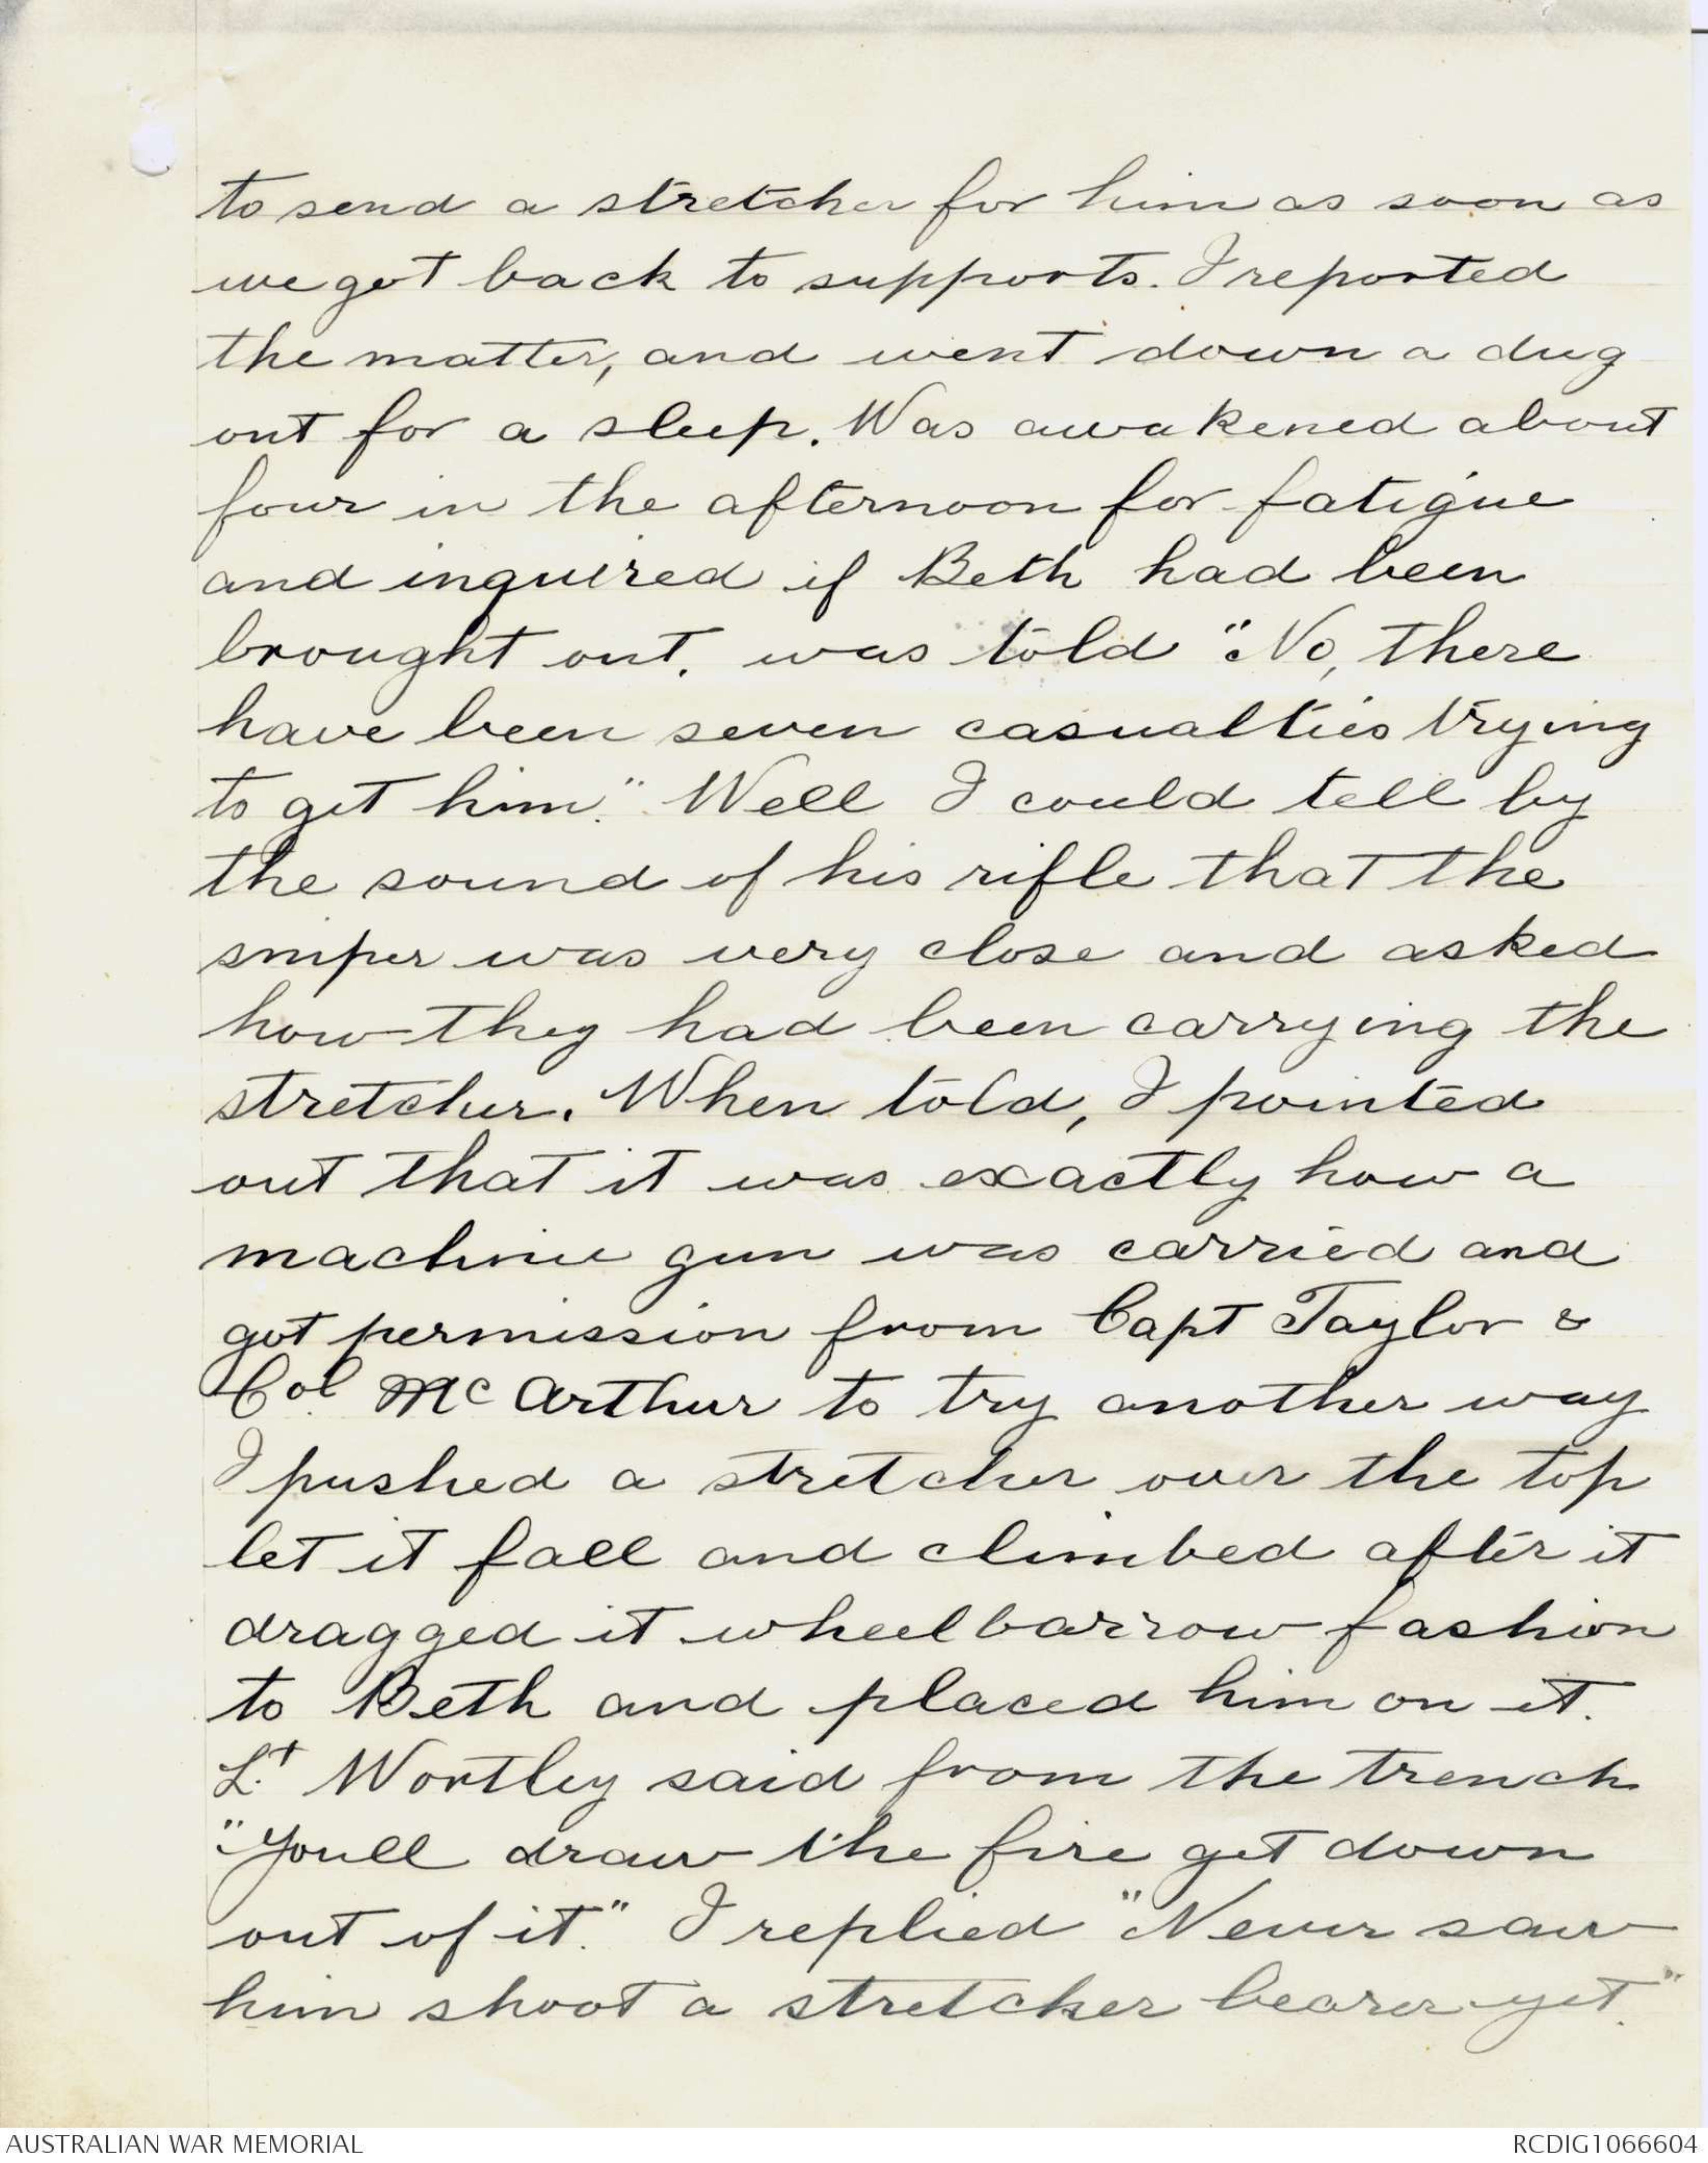 to send a stretcher for him as soon as
we got back to supports. I reported
the matter, and went down a dug
out for a sleep. Was awakened about
four in the afternoon for fatigue
and inquired if Beth had been
brought out. was told "No, there
have been seven casualties trying
to get him." Well I could tell by
the sound of his rifle that the
sniper was very close and asked
how they had been carrying the
stretcher. When told, I pointed
out that it was exactly how a
machine gun was carried and
got permission from Capt Taylor &
Col McArthur to try another way
I pushed a stretcher over the top
let it fall and climbed after it
dragged it wheelbarrow fashion
to Beth and placed him on it.
Lt Wortley said from the trench
"Youll draw the fire get down
out of it." I replied "Never saw
him shoot a stretcher bearer yet."
AUSTRALIAN WAR MEMORIAL
RCDIG1066604